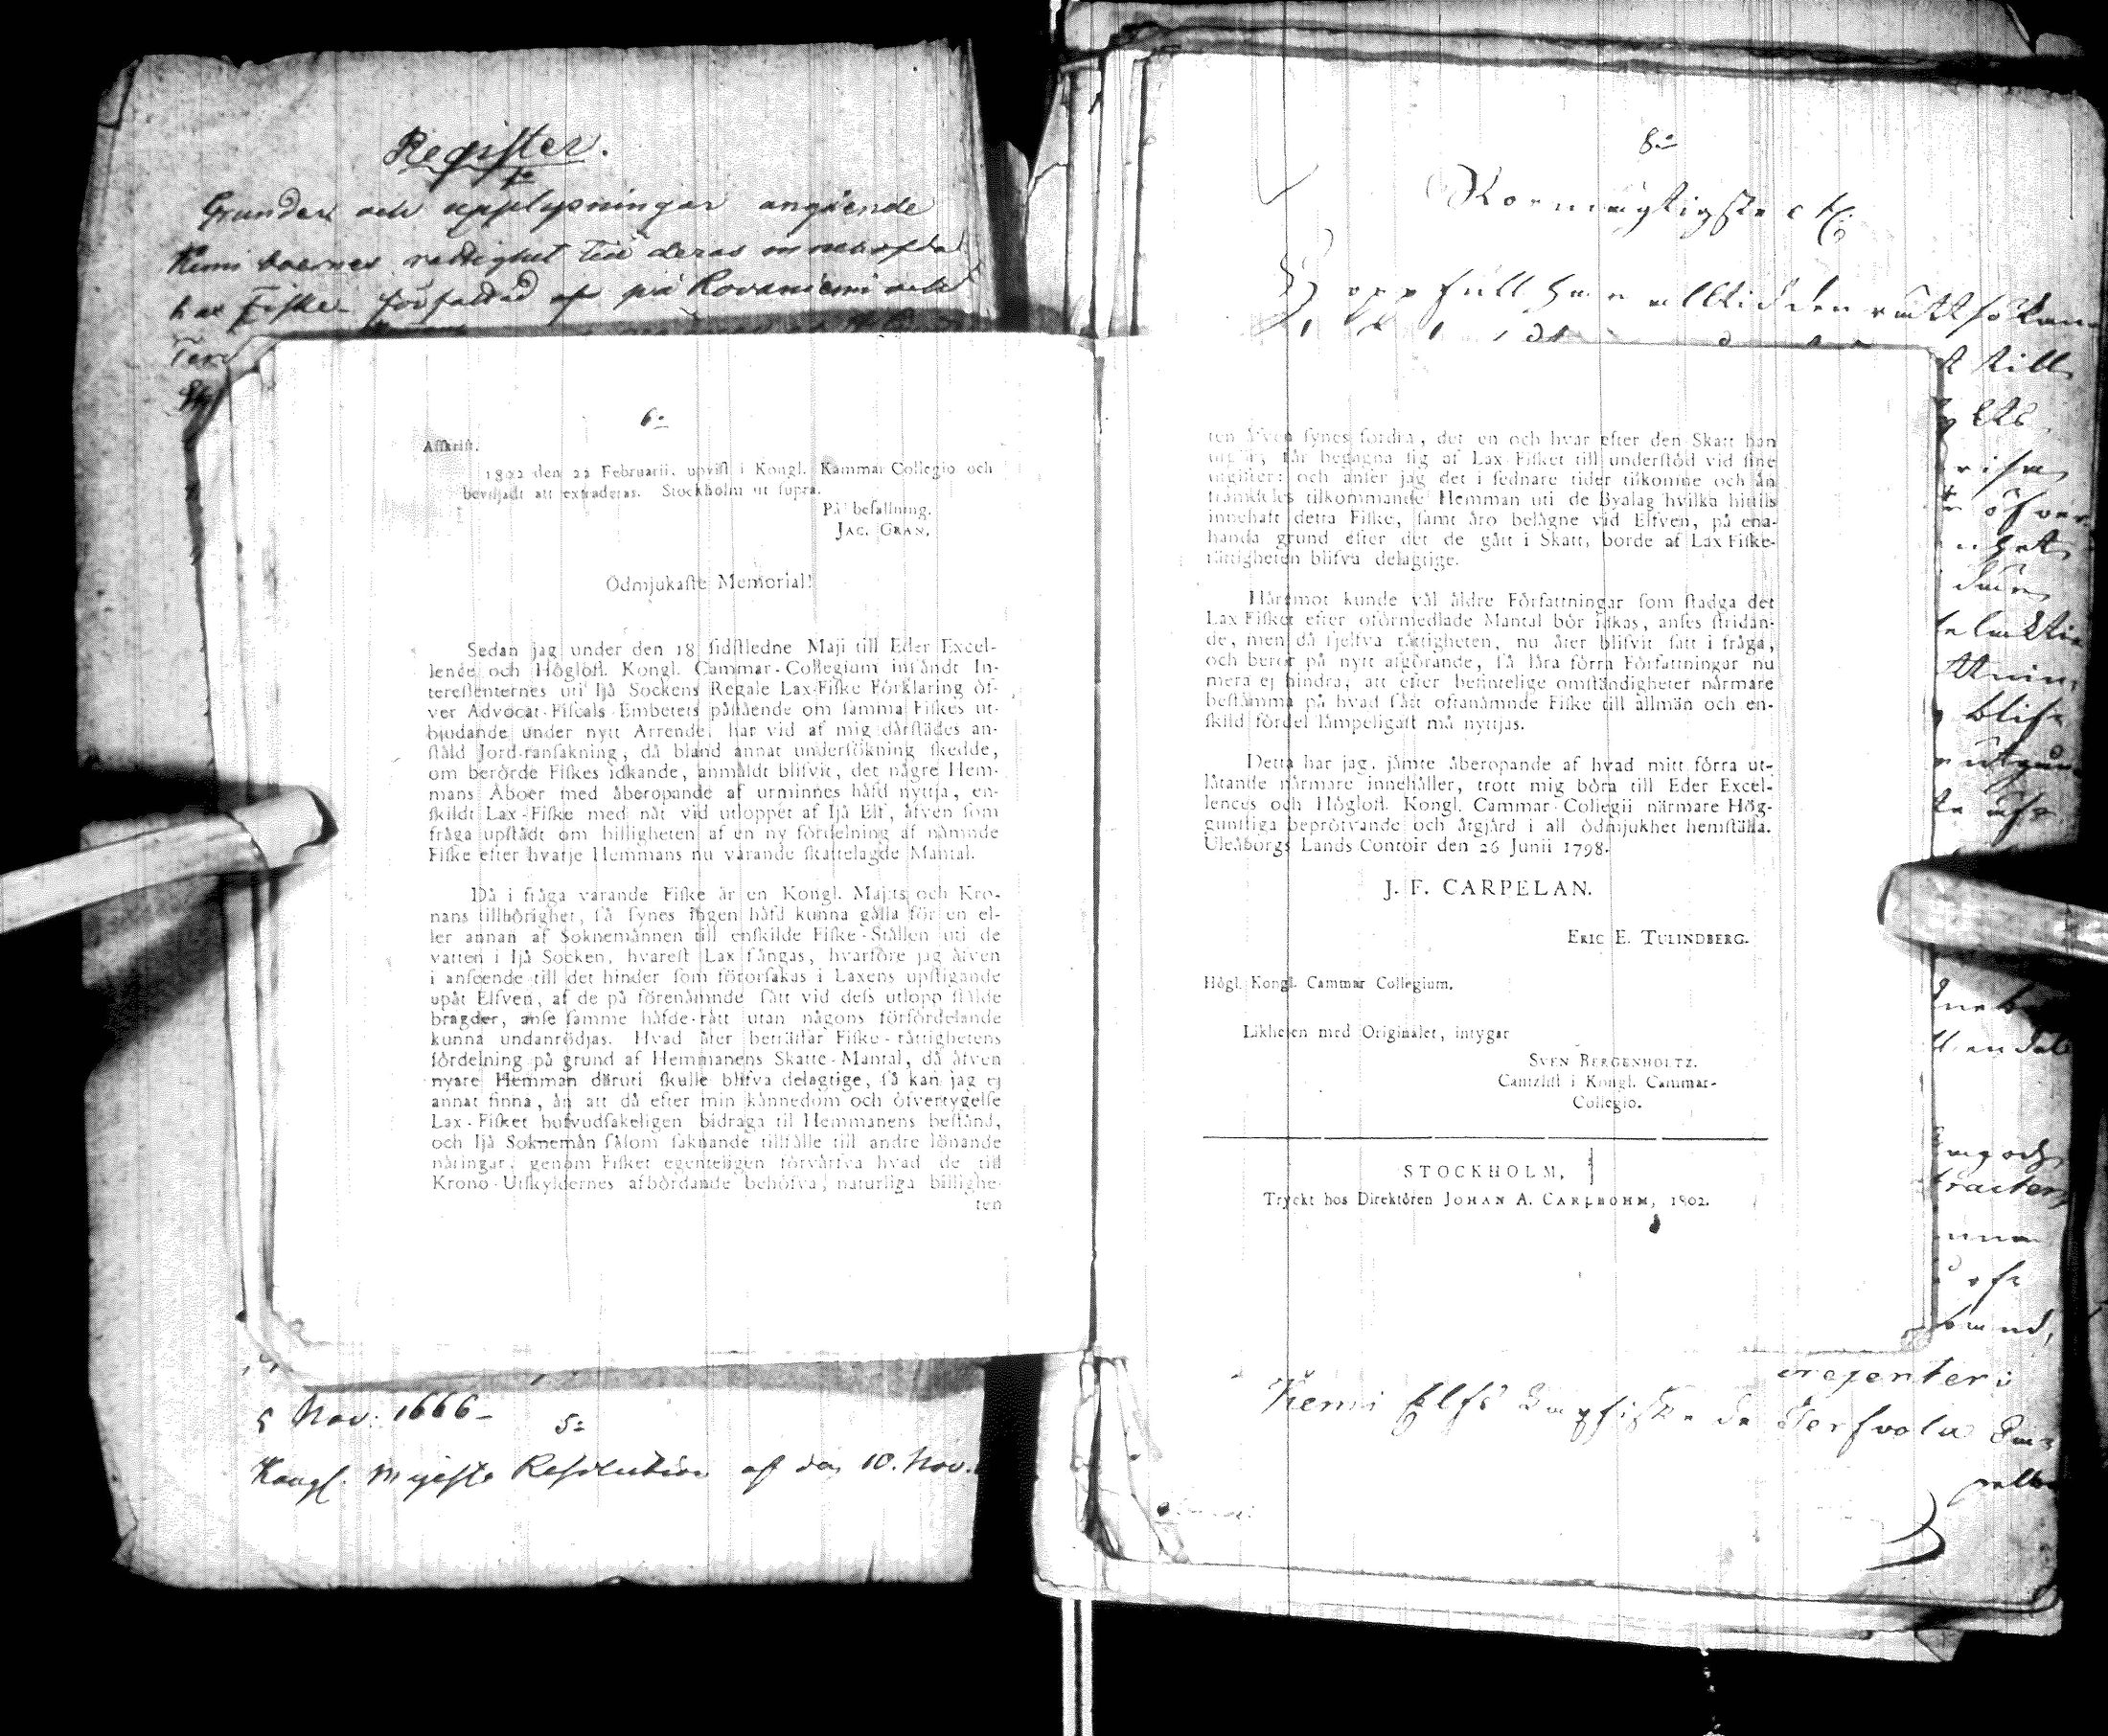 Register.
1o
Grunder och upplysningar angående
Kemi boernes rättighet till deras innehafda
Lax Fiske författad af på Rovaniemi och
Ter
6=
Affkrift.
1802 den 22 Februarii, upvift i Kongl. Kammar Collegio och
beviljadt att extraderas. Stockholm ut fupra.
På befallning.
JAC. GRAN.
Ödmjukafte Memorial!
Sedan jag under den 18 fidftledne Maji till Eder Excel-
lence och Höglofl. Kongl. Cammar-Collegium infåndt In-
tereffenternes uti Ijå Sockens Regale Lax-Fifke Förklaring öf-
ver Advocat-Fifcals-Embetets påftående om famma Fifkes ut-
bjudande under nytt Arrende, har vid af mig dårftådes an-
ftåld Jord-ranfakning, då bland annat underfökning fkedde,
om berörde Fifkes idkande, anmåldt blifvit, det någre Hem-
mans Åboer med åberopande af urminnes håfd nyttja, en-
fkildt Lax-Fifke med nåt vid utloppet af Ijå Elf, åfven fom
fråga upftådt om billigheten af en ny fördelning af nåmnde
Fifke efter hvarje Hemmans nu varande fkattelagde Mantal.
Då i fråga varande Fifke år en Kongl. Maj:ts och Kro-
nans tillhörighet, få fynes ingen håfd kunna gålla för en el-
ler annan af Soknemånnen till enfkilde Fifke-Stållen uti de
vatten i Ijå Socken, hvareft Lax fångas, hvarföre jag åfven
i anfeende till det hinder fom förorfakas i Laxens upftigande
upåt Elfven, af de på förenåmnde fått vid defs utlopp ftålde
bragder, anfe famme håfde-rått utan någons förfördelande
kunna undanrödjas. Hvad åter betråffar Fifke-råttighetens
fördelning på grund af Hemmanens Skatte-Mantal, då åfven
nyare Hemman dåruti fkulle blifva delagtige, få kan jag ej
annat finna, ån att då efter min kånnedom och öfvertygelfe
Lax-Fifket hufvudfakeligen bidraga til Hemmanens beftånd,
och Ijå Soknemån fåfom faknande tillfålle till andre lönande
nåringar, genom Fifket egenteligen förvårfva hvad de till
Krono-Utfkyldernes afbördande behöfva, naturliga billighe-
ten
5 Nov: 1666-
5=
Kongl. Majests Resolution af den 10. Nov.
8=
Stormägtigste
Hoppfull har alltid den rättsökan
ten åfven fynes fordra, det en och hvar efter den Skatt han
utgör, får begagna fig af Lax-Fifket till underftöd vid fine
utgifter: och anfer jag det i fednare tider tilkomne och ån
framdeles tilkommande Hemman uti de Byalag hvilka hittils
innehaft detta Fifke, famt åro belågne vid Elfven, på ena-
handa grund efter det de gått i Skatt, borde af Lax Fifke-
råttigheten blifva delagtige.
Håremot kunde vål åldre Författningar fom ftadga det
Lax Fifket efter oförmedlade Mantal bör idkas, anfes ftridan-
de, men då fjelfva råttigheten, nu åter blifvit fatt i fråga,
och beror på nytt afgörande, få låra förra Författningar nu
mera ej hindra, att efter befintelige omftåndigheter nårmare
beftåmma på hvad fått oftanåmnde Fifke till allmån och en-
fkild fördel låmpeligaft må nyttjas.
Detta har jag, jåmte åberopande af hvad mitt förra ut-
låtande nårmare innehåller, trott mig böra till Eder Excel-
lences och Höglofl. Kongl. Cammar-Collegii närmare Hög-
gunftiga bepröfvande och åtgjård i all ödmjukhet hemftålla.
Uleåborgs Lands Contoir den 26 Junii 1798.
J. F. CARPELAN.
ERIC E. TULINDBERG.
Högl. Kongl. Cammar Collegium.
Likheten med Originalet, intygar
SVEN BERGENHOLTZ.
Canzlift i Kongl. Cammar-
Collegio.
STOCKHOLM,
Tryckt hos Direktören JOHAN A. CARLBOHM, 1802.
Kemi Elfs Laxfiske de Terfvola